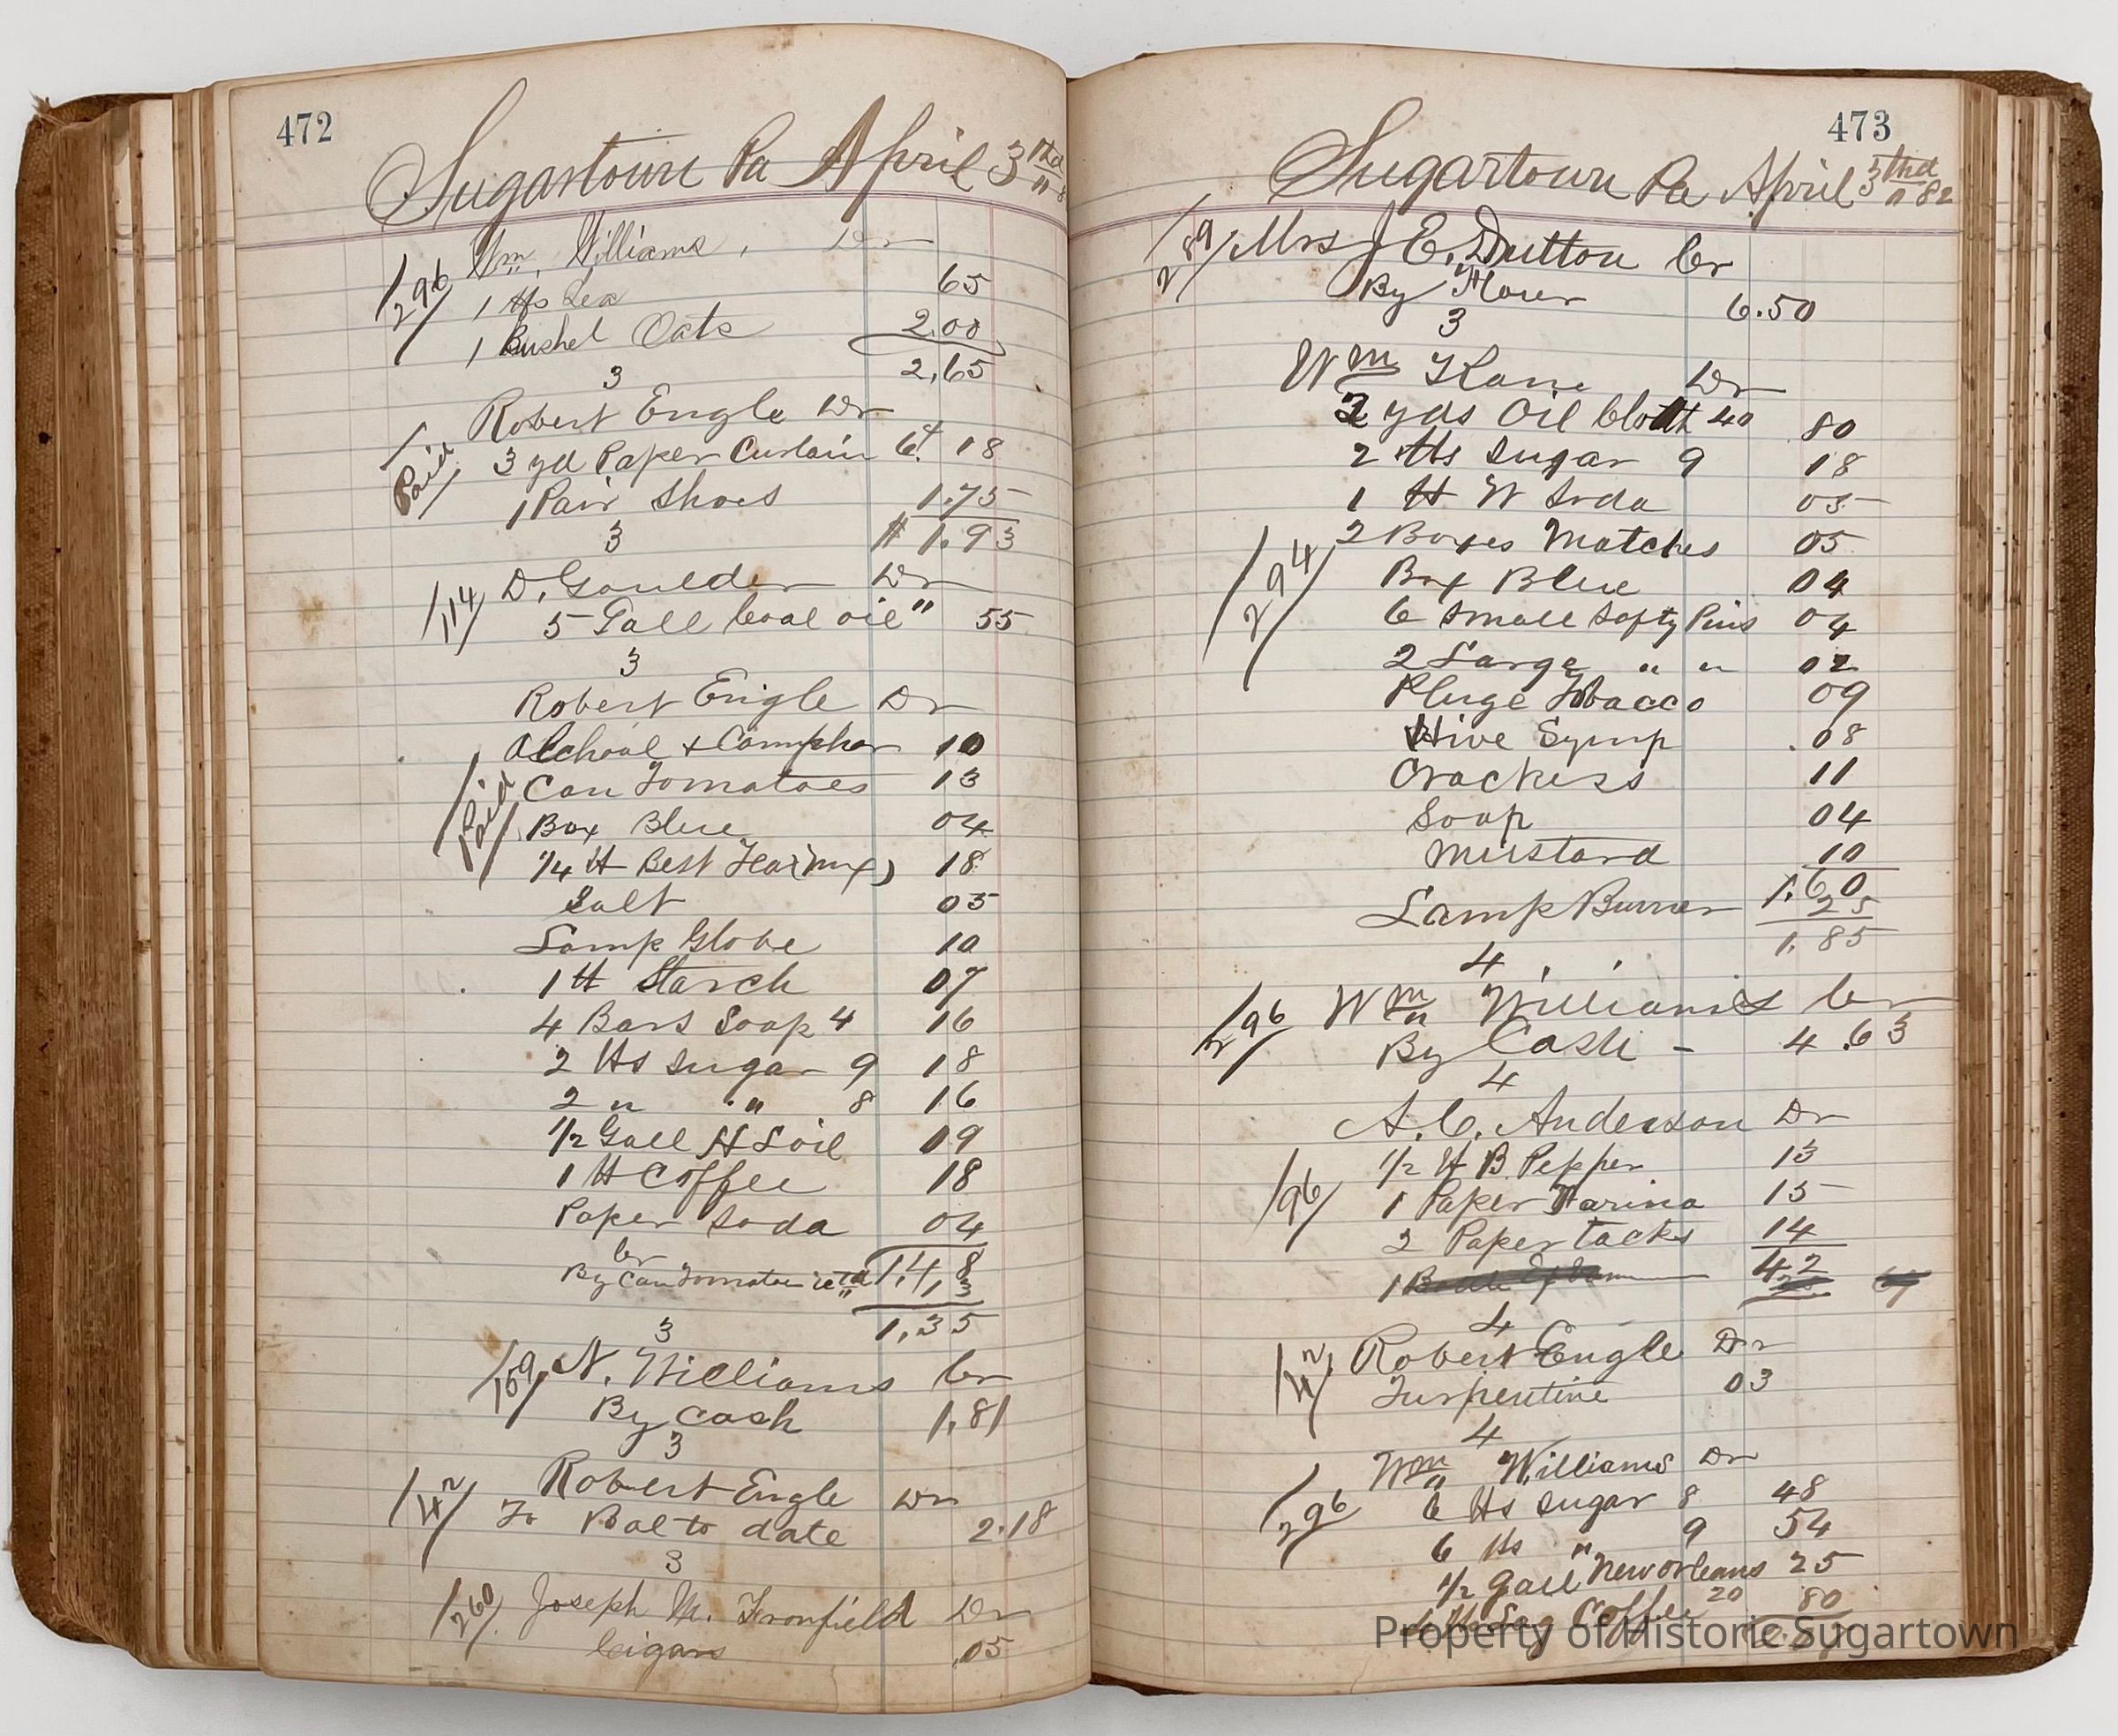 472
Sugartown Pa April 3rd
296
Wm. Williams, Dr
1 lb Tea 65
1 Bushel Oats 2.00
2,65
3
Robert Engle Dr
Paid
3 yd Paper Curtain 6 18
1 Pair Shoes 1.75
$1.93
3
114
D. Goulder Dr
5 Gall Coal oil " 55
3
Robert Engle Dr
Paid
Alchoal + Camphor 10
Can Tomatoes 13
Box Blue 04
1/4 lb Best Tea (mx) 18
Salt 05
Lamp Globe 10
1 lb Starch 07
4 Bars Soap 4 16
2 lbs sugar 9 18
2 " " 8 16
1/2 Gall H L oil 09
1 lb Coffee 18
Paper Soda 04
Cr 1,48
By Can Tomatoes 13
1,35
3
159
N. Williams Cr
By Cash 1,81
3
42
Robert Engle Dr
To Bal to date 2.18
3
260
Joseph M. Fronfield Dr
Cigars .05
473
Sugartown Pa April 3rd 82
289
Mrs J E. Dutton Cr
By Flour 6.50
3
Wm Kane Dr
2 yds Oil Cloth 40 80
2 lbs Sugar 9 18
1 lb W Soda 05
2 Boxes Matches 05
294
Box Blue 04
6 Small Safty Pins 04
2 Large " " 02
Pluge Tobacco 09
Hive Syrup .08
Crackers 11
Soap 04
Mustard 10
1.60
Lamp Burner 25
1.85
4
296
Wm Williams Cr
By Cash - 4.63
4
A. C. Anderson Dr
96
1/2 lb B Pepper 13
1 Paper Farina 15
2 Paper tacks 14
42
1
4
42
Robert Engle Dr
Turpentine 03
4
Wm Williams Dr
296
6 lbs Sugar 8 48
6 lbs " 9 54
1/2 Gall New Orleans 25
4 lbs Lag Coffee 20 80
Property of Historic Sugartown